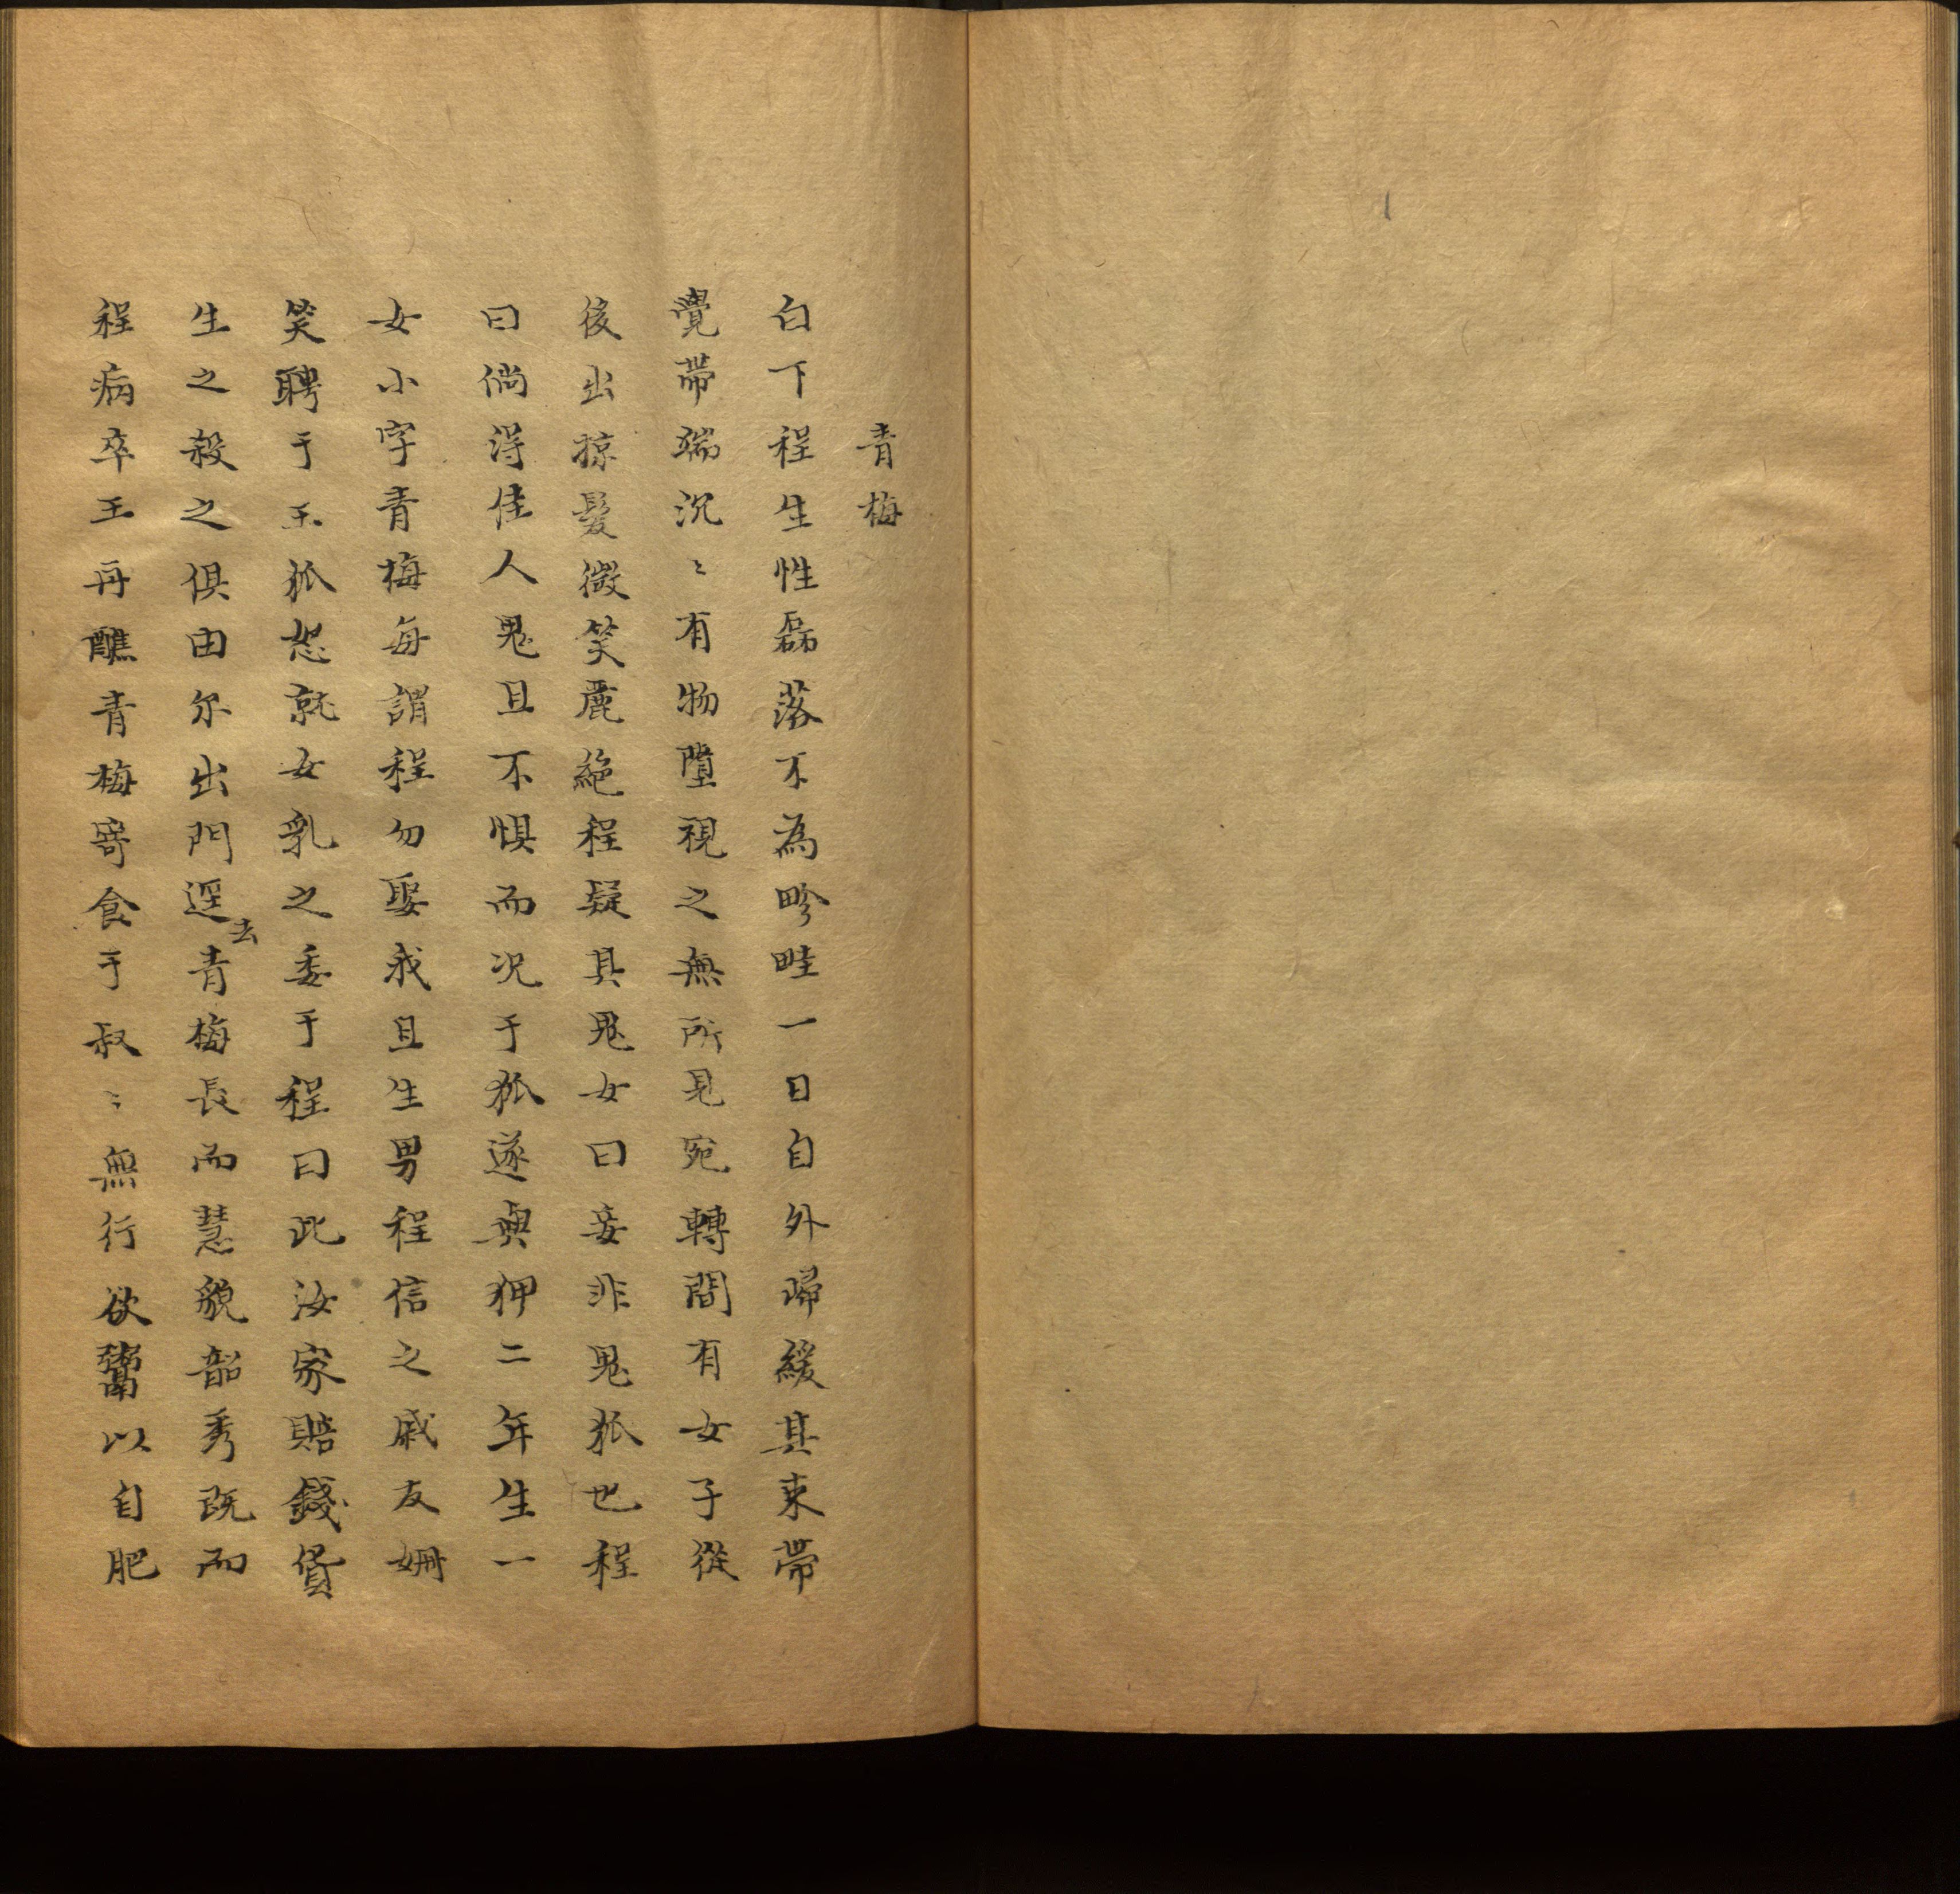 青梅
白下程生性磊落不為畛畦一日自外歸緩其束帶
覺帶端沉〻有物墮視之無所見宛轉間有女子從
後出掠髮微笑麗絶程疑其鬼女曰妾非鬼狐也程
曰倘得佳人鬼且不惧而况于狐遂與狎二年生一
女小字青梅每謂程勿娶我且生男程信之戚友姍
笑聘于王狐怒就女乳之委于程曰此汝家賠錢貨
生之殺之俱由尔出門逕去青梅長而慧貌韶秀既而
程病卒王再醮青梅寄食于叔〻無行欲鬻以自肥